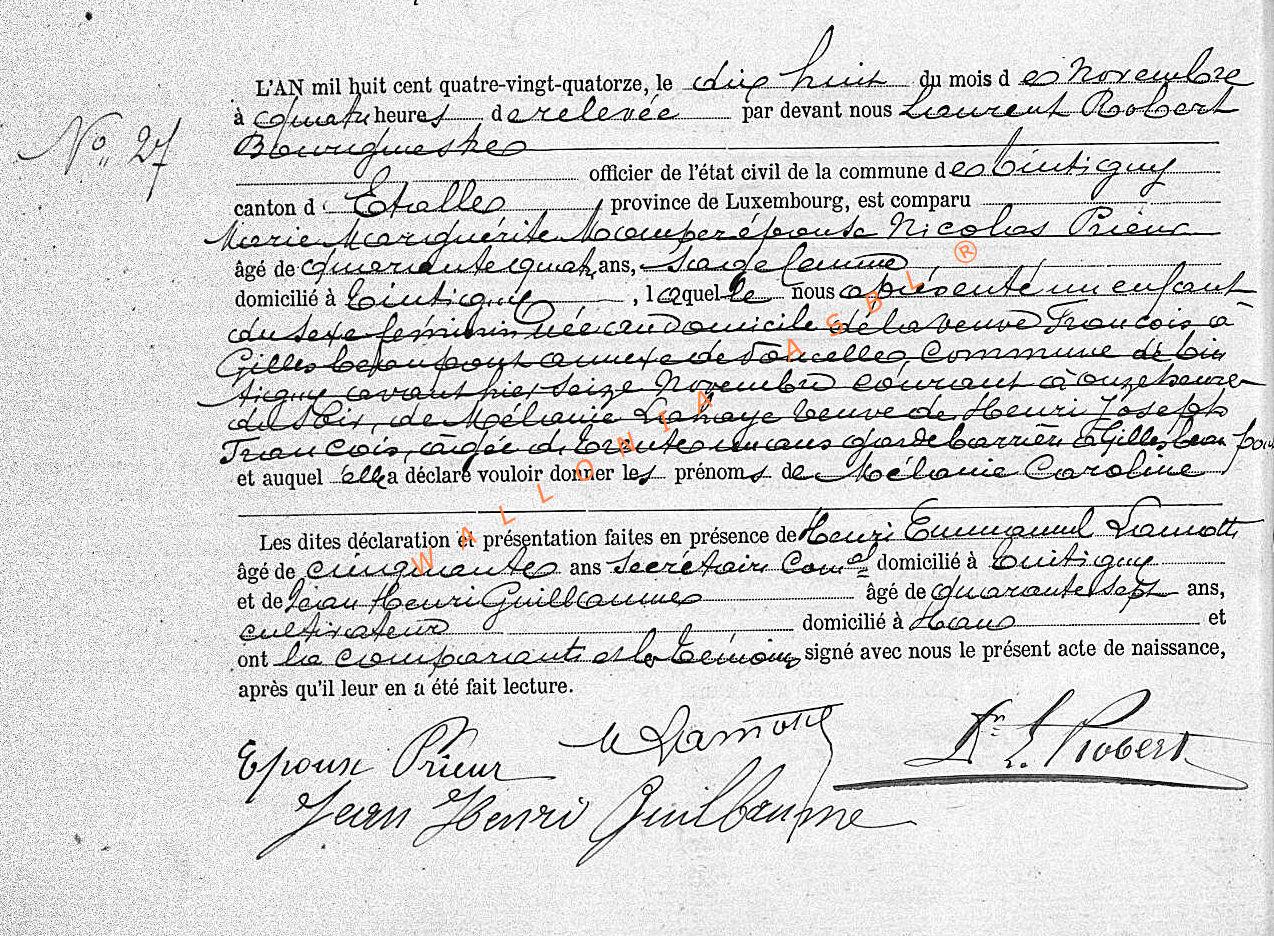 L'AN mil huit cent quatre-vingt-quatorze, le dix huit du mois de Novembre
à quatre heures de relevée par devant nous Laurent Robert
No. 27
Bourgmestre
officier de l'état civil de la commune de Tintigny
canton d'Etalle, province de Luxembourg, est comparu
Marie Marguérite épouse Nicolas Prieur
âgé de quarante quatre ans, sage femme,
domicilié à Tintigny, laquelle nous a présenté un enfant
du sexe féminin née au domicile de la veuve François a
Gilles beaupont annexe de commune de Tin
tigny avant hier seize Novembre courant à onze heure
du soir, de Mélanie Lahaye Veuve de Henri Joseph
François, agée de trente un ans garde barrière à Gillesbeaupont
et auquel elle a déclaré vouloir donner les prénoms de Mélanie Caroline
Les dites déclaration et présentation faites en présence de Henri Emmanuel Lamotte
âgé de cinquante ans secrétaire Comal domicilié à Tintigny
et de Jean Henri Guillaume âgé de quarante sept ans,
cultivateur domicilié à Han et
ont la comparante et les témoins signé avec nous le présent acte de naissance,
après qu'il leur en a été fait lecture.
Epouse Prieur Lamotte Dr L. Robert
Jean Henri Guillaume
WALLONIA ASBL ®